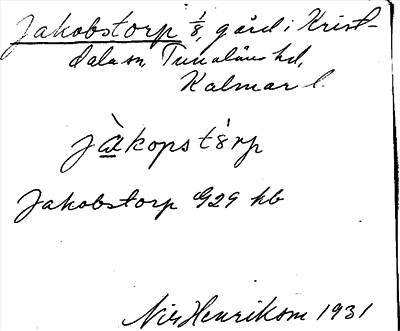 Jakobstorp 1/8, gård i Krist-
dala sn, Tunaläns hd,
Kalmar l.
jàkopstórp
Jakobstorp G29 kb
Nils Henriksson 1931